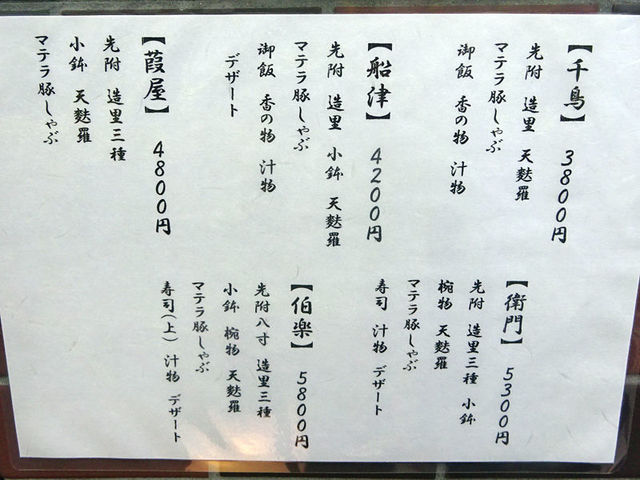 【千鳥】 3800円
先附 造里 天麩羅
マテラ豚しゃぶ
御飯 香の物 汁物
【船津】 4200円
先附 造里 小鉢 天麩羅
マテラ豚しゃぶ
御飯 香の物 汁物
デザート
【葭屋】 4800円
先附 造里三種
小鉢 天麩羅
マテラ豚しゃぶ
【衛門】 5300円
先附 造里三種 小鉢
椀物 天麩羅
マテラ豚しゃぶ
寿司 汁物 デザート
【伯楽】 5800円
先附八寸 造里三種
小鉢 椀物 天麩羅
マテラ豚しゃぶ
寿司(上) 汁物 デザート